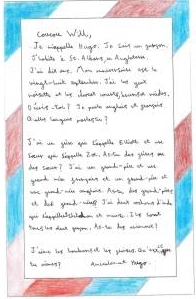 Coucou Will,
Je m'appelle Hugo. Je suis un garçon.
J'habite à St. Albans, en Angleterre.
J'ai dix ans. Mon anniversaire est le
vingt-huit septembre. J'ai les yeux
noisette et les cheveux courts,
D'où es-tu? Je parle anglais et français.
Quelles langues parles-tu?
J'ai un frère qui s'appelle Elliott et une
sœur qui s'appelle Zoë. As-tu des frères ou
des sœurs? J'ai un grand-père et une
grand-mère français et un grand-père et
une grand-mère anglais. As-tu des grands-pères
et des grand-mères? J'ai deux cochons d'inde
qui s'appellent et Ils sont
tous les deux garçons. As-tu des animaux?
J'aime les bonbons et les glaces.
tu aimes? Hugo.